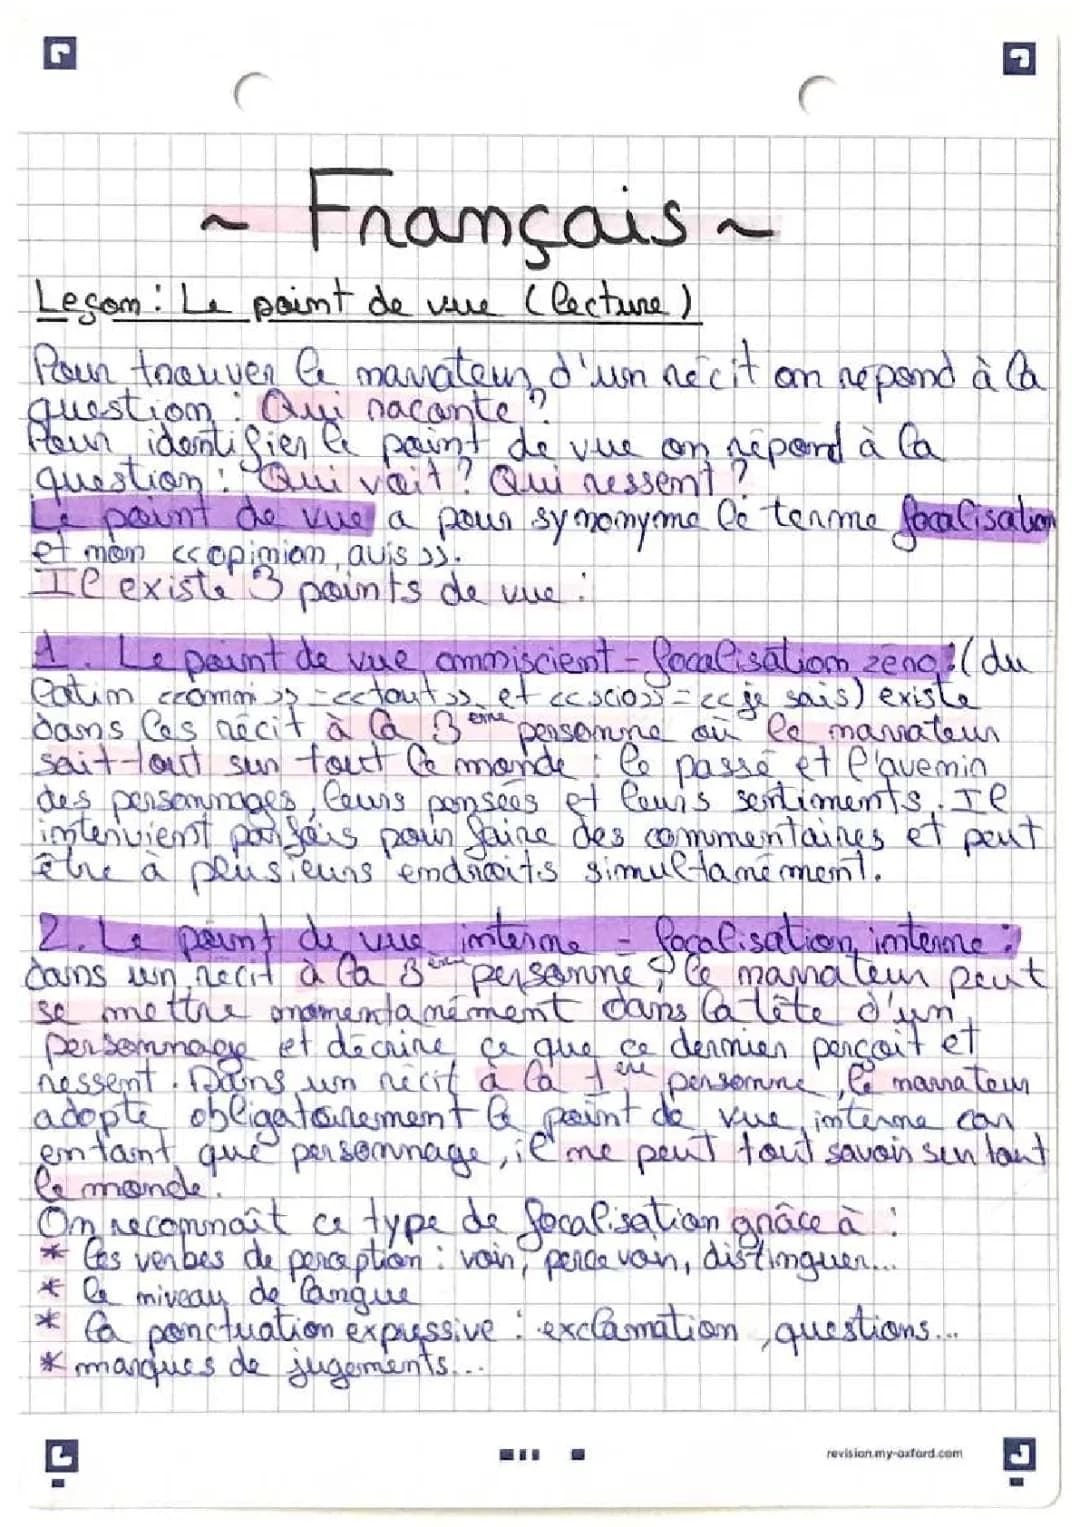 ~ Français ~
Leçon : Le point de vue (lecture)
Pour trouver le narrateur d'un récit on répond à la
question : Qui raconte ?
Pour identifier le point de vue on répond à la
question : Qui voit ? Qui ressent ?
Le point de vue a pour synonyme le terme focalisation
et non <<opinion, avis>>.
Il existe 3 points de vue :
1. Le point de vue omniscient - focalisation zéro : (du
latin <<omni>> = <<tout>> et <<scio>> = <<je sais) existe
dans les récit à la 3ème personne où le narrateur
sait tout sur tout le monde : le passé et l'avenir
des personnages, leurs pensées et leurs sentiments. Il
intervient parfois pour faire des commentaires et peut
être à plusieurs endroits simultanément.
2. Le point de vue interne - focalisation interne :
dans un récit à la 3ème personne, le narrateur peut
se mettre momentanément dans la tête d'un
personnage et décrire ce que ce dernier perçoit et
ressent. Dans un récit à la 1ère personne, le narrateur
adopte obligatoirement le point de vue interne car
entant que personnage, il ne peut tout savoir sur tout
le monde.
On reconnaît ce type de focalisation grâce à :
* les verbes de perception : voir, percevoir, distinguer...
* le niveau de langue
* la ponctuation expressive : exclamation, questions...
* marques de jugements...
revision.my-oxford.com